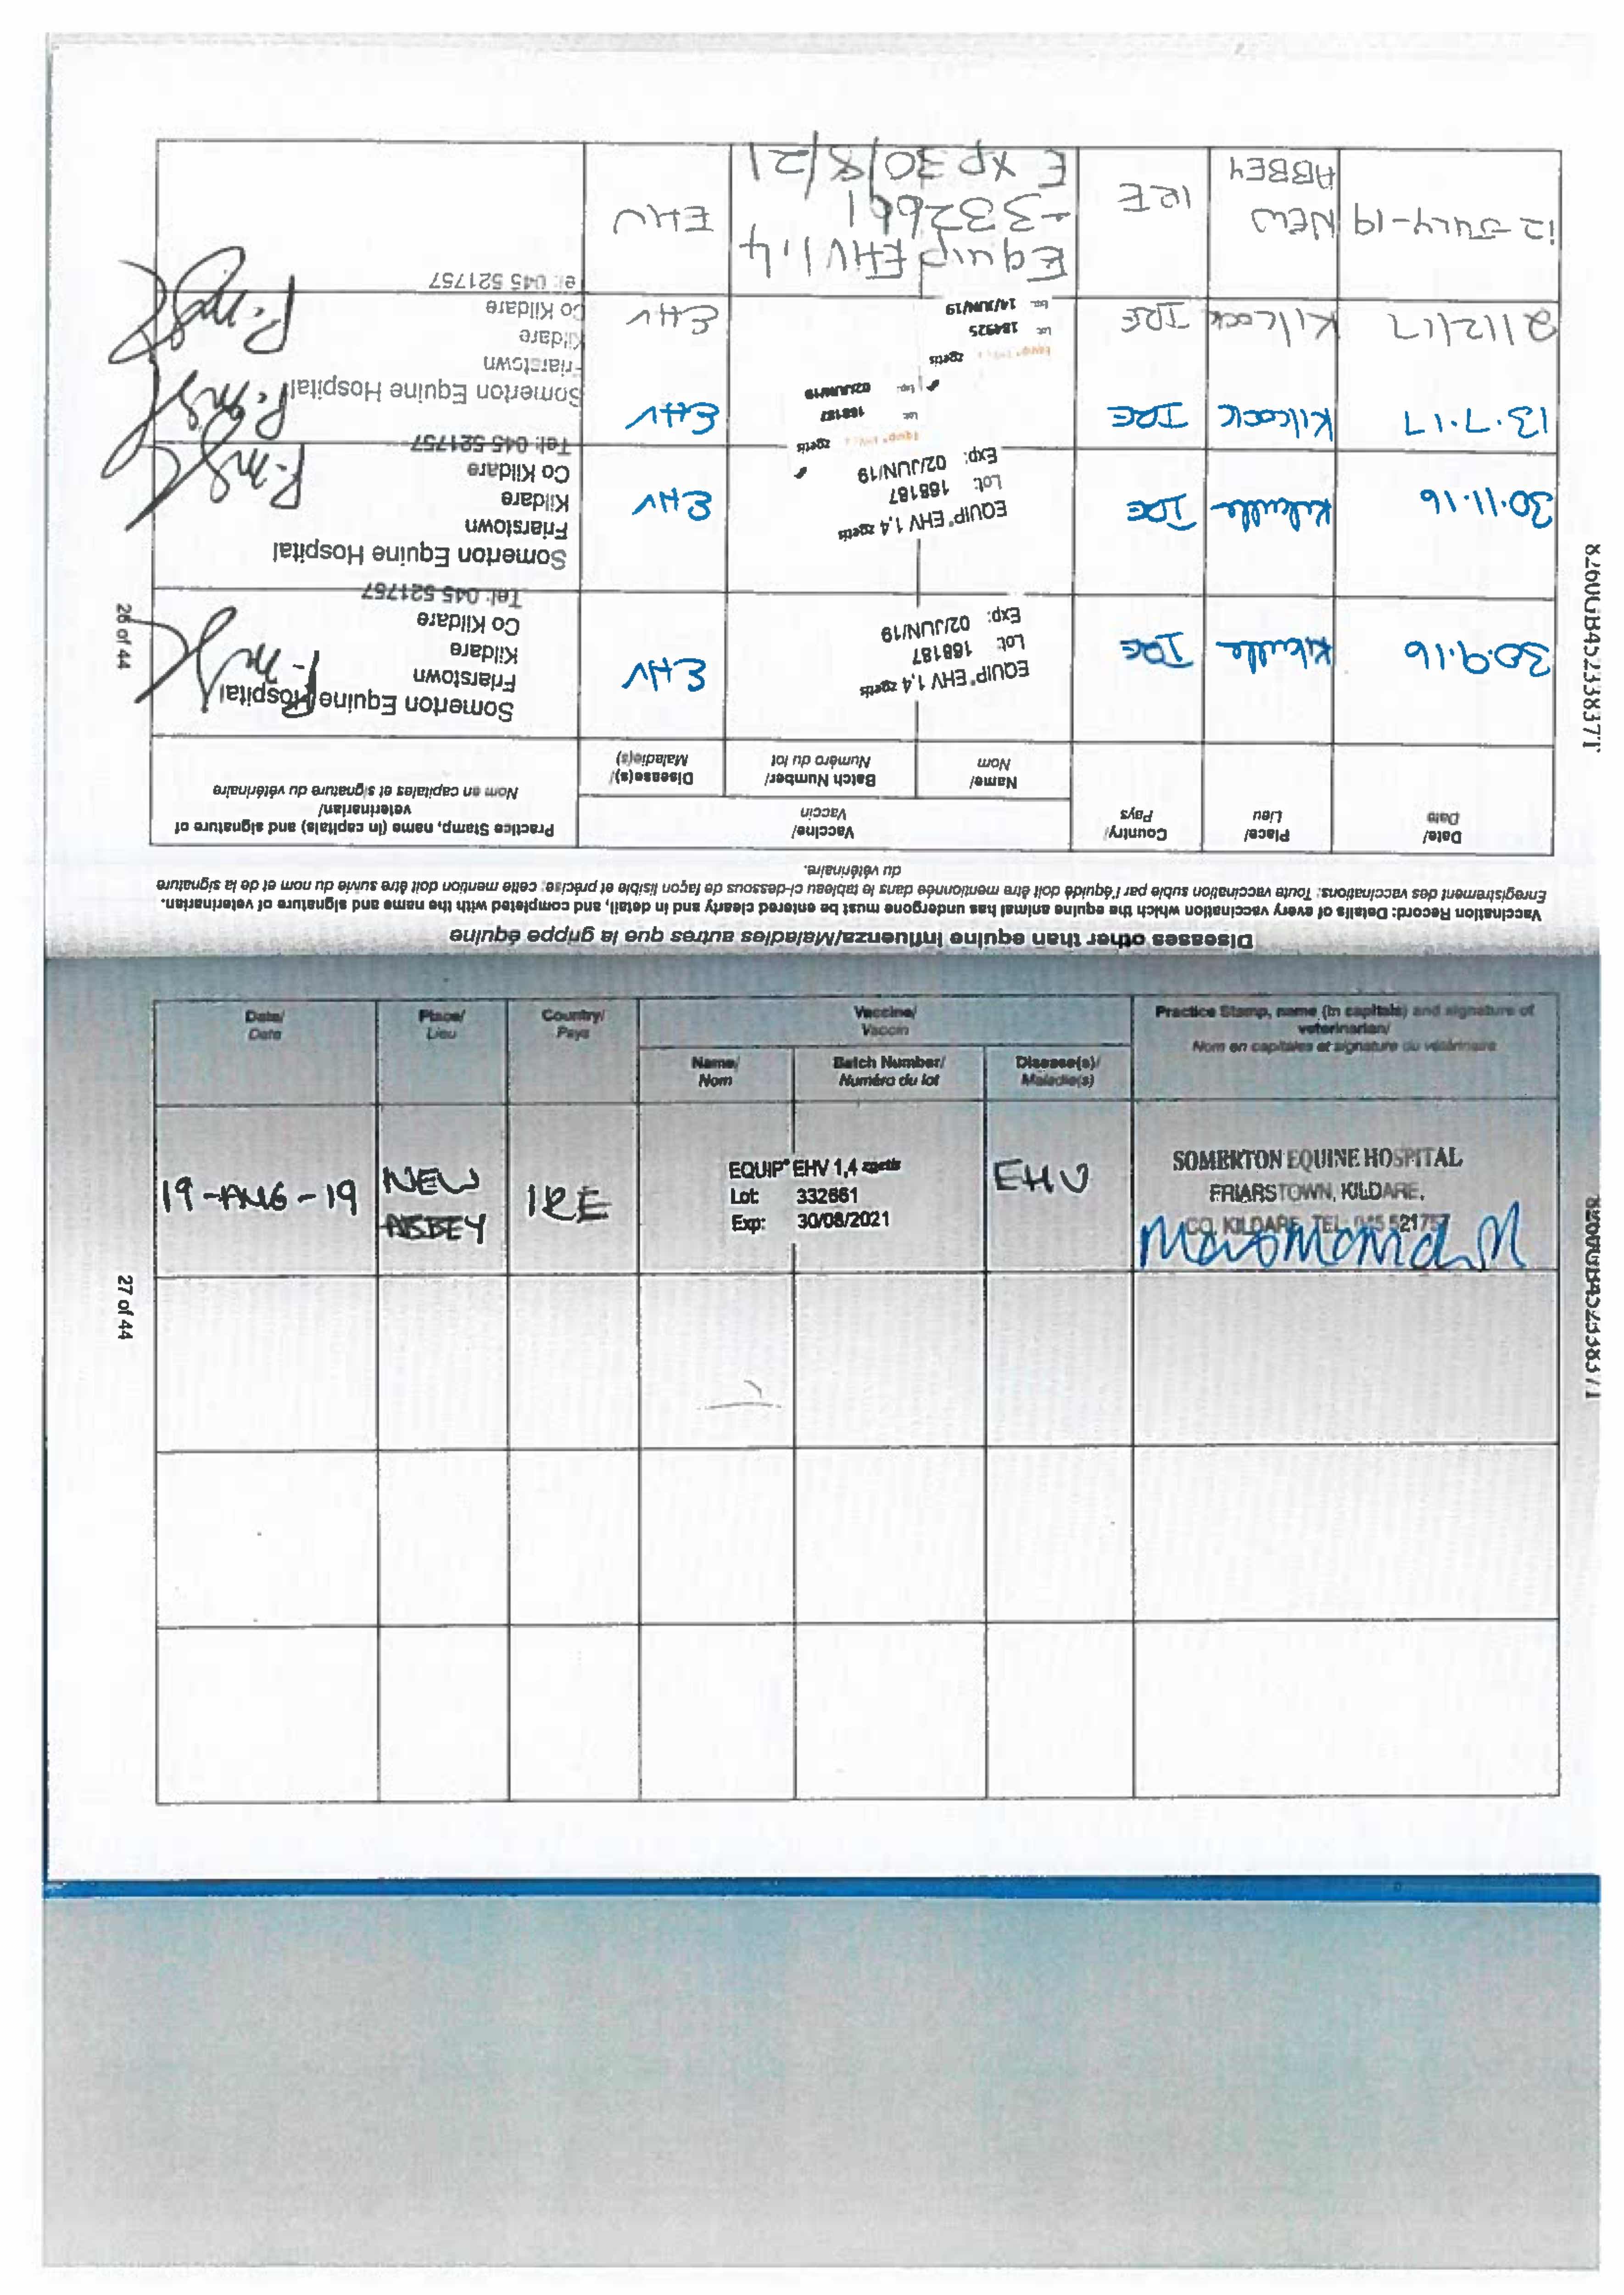 Diseases other than equine influenza/Maladies autres que la grippe équine
Vaccination Record: Details of every vaccination which the equine animal has undergone must be entered clearly and in detail, and completed with the name and signature of veterinarian.
Enregistrement des vaccinations: Toute vaccination subie par l'équidé doit être mentionnée dans le tableau ci-dessous de façon lisible et précise: cette mention doit être suivie du nom et de la signature
du vétérinaire.
Date/
Date
Place/
Lieu
Country/
Pays
Vaccine/
Vaccin
Name/
Nom
Batch Number/
Numéro du lot
Disease(s)/
Maladie(s)
Practice Stamp, name (in capitals) and signature of
veterinarian/
Nom en capitales et signature du vétérinaire
30.9.16
Kilcullen
IRE
EQUIP® EHV 1,4 zoetis
Lot: 168187
Exp: 02/JUN/19
EHV
Somerton Equine Hospital
Friarstown
Kildare
Co Kildare
Tel: 045 521757
30.11.16
Kilcullen
IRE
EQUIP® EHV 1,4 zoetis
Lot: 168187
Exp: 02/JUN/19
EHV
Somerton Equine Hospital
Friarstown
Kildare
Co Kildare
Tel: 045 521757
13.7.17
Kilcock
IRE
zoetis
Lot: 168187
Exp: 02/JUN/19
EHV
Somerton Equine Hospital
Friarstown
Kildare
Co Kildare
el: 045 521757
2/12/17
Kilcock
IRE
zoetis
Lot: 184925
Exp: 14/JUN/19
EHV
12-JULY-19
NEW
ABBEY
IRE
Equip EHV 1.4
-332661
Exp 30/8/21
EHV
26 of 44
8260GB45233837T
Date/
Date
Place/
Lieu
Country/
Pays
Vaccine/
Vaccin
Name/
Nom
Batch Number/
Numéro du lot
Disease(s)/
Maladie(s)
Practice Stamp, name (in capitals) and signature of
veterinarian/
Nom en capitales et signature du vétérinaire
19-AUG-19
NEW
ABBEY
IRE
EQUIP® EHV 1,4 zoetis
Lot: 332661
Exp: 30/08/2021
EHV
SOMERTON EQUINE HOSPITAL
FRIARSTOWN, KILDARE,
CO. KILDARE, TEL: 045 521757
27 of 44